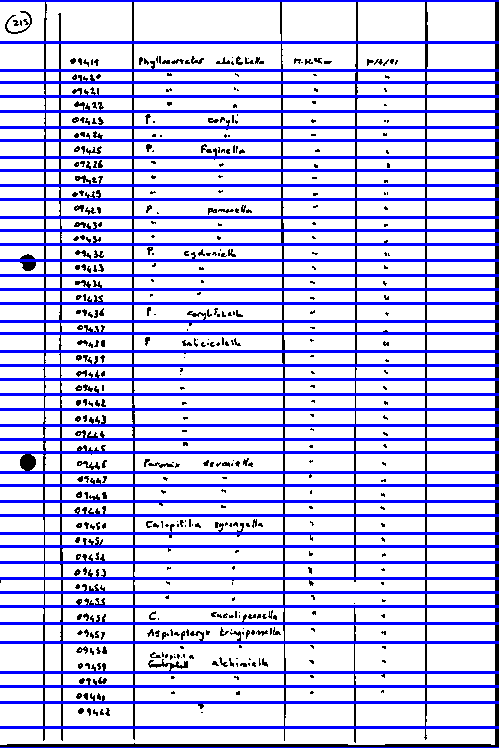 213
09419 Phyllonorycter
09420 " " " "
09421 " " " "
09422 " " " "
09423 P. coryli " "
09424 " " " "
09425 P. Faginella " "
09426 " " " "
09427 " " " "
09428 " " " "
09429 P. pomonella " "
09430 " " " "
09431 " " " "
09432 P. cydoniella " "
09433 " " " "
09434 " " " "
09435 " " " "
09436 P. corylifoliella " "
09437 " " "
09438 P salicicolella " "
09439 " " "
09440 " " "
09441 " " "
09442 " " "
09443 " " "
09444 " " "
09445 " " "
09446 Parornix devoniella " "
09447 " " " "
09448 " " " "
09449 " " " "
09450 Caloptilia syringella " "
09451 " " " "
09452 " " " "
09453 " " " "
09454 " " " "
09455 " " " "
09456 C. cuculipennella " "
09457 Aspilapteryx tringipennella " "
09458 " " " "
09459 Caloptilia alchimiella " "
09460 " " " "
09461 " " " "
09462 ?